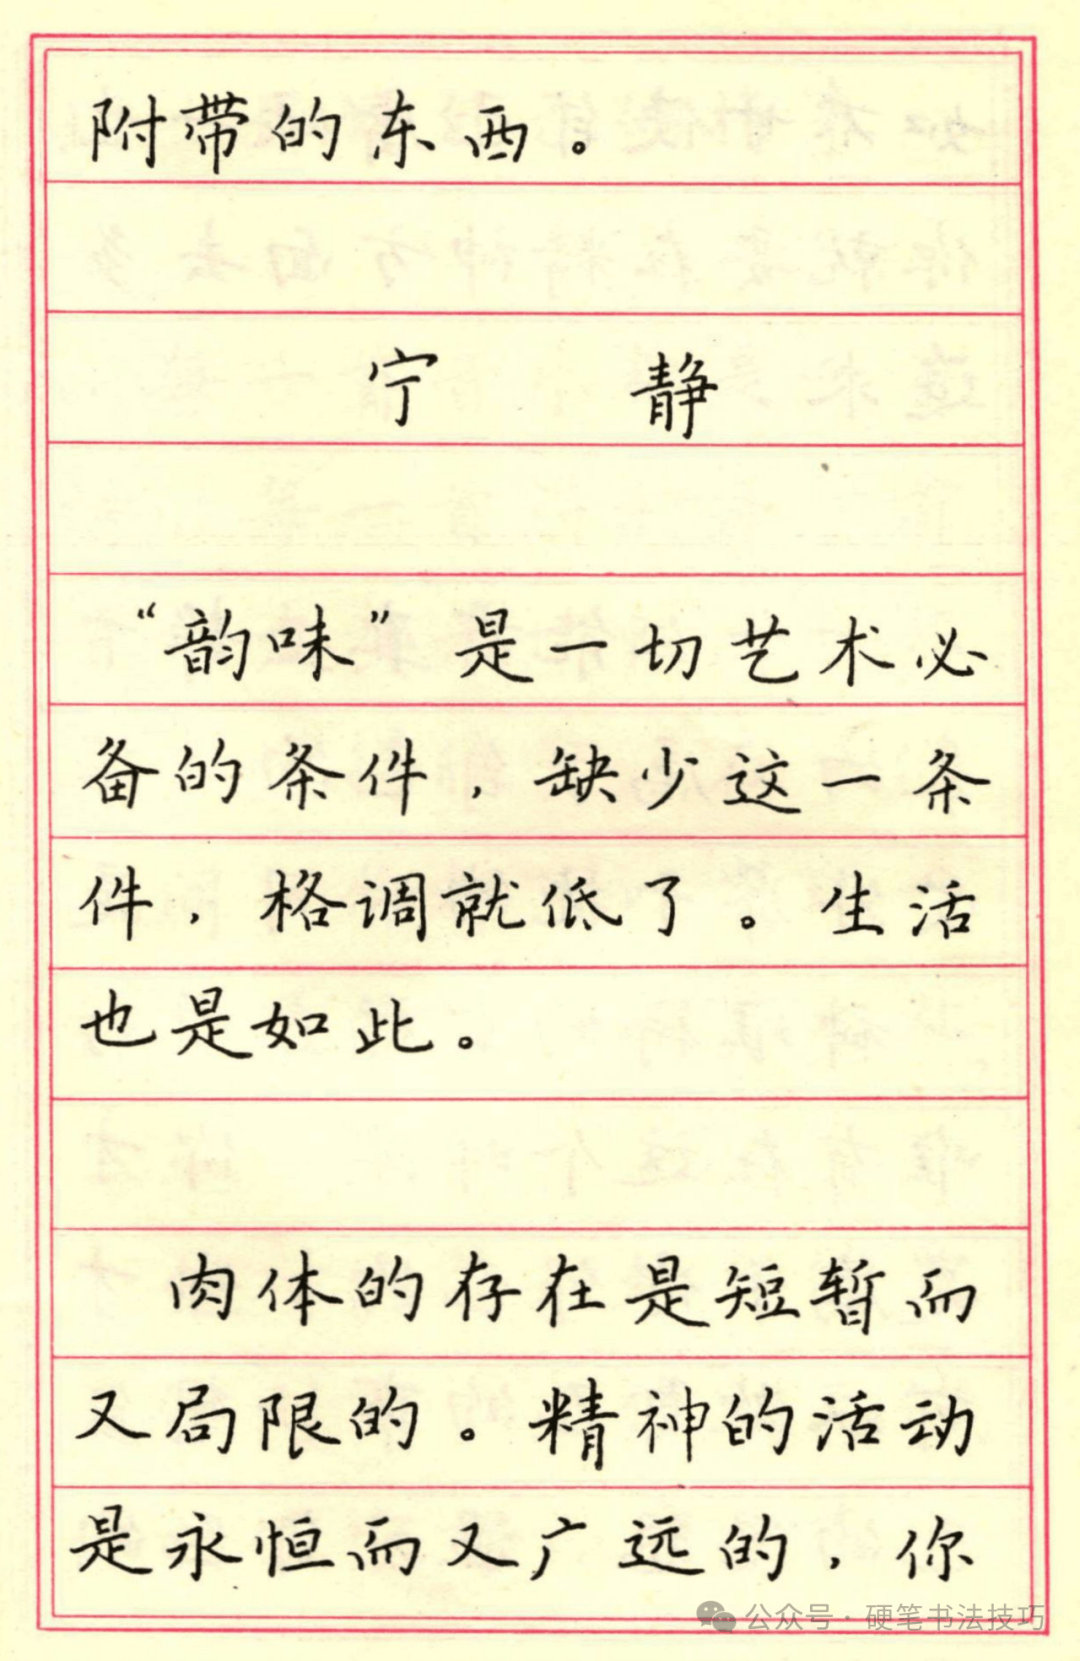 附带的东西。
宁 静
“韵味”是一切艺术必
备的条件，缺少这一条
件，格调就低了。生活
也是如此。
肉体的存在是短暂而
又局限的。精神的活动
是永恒而又广远的，你
公众号·硬笔书法技巧